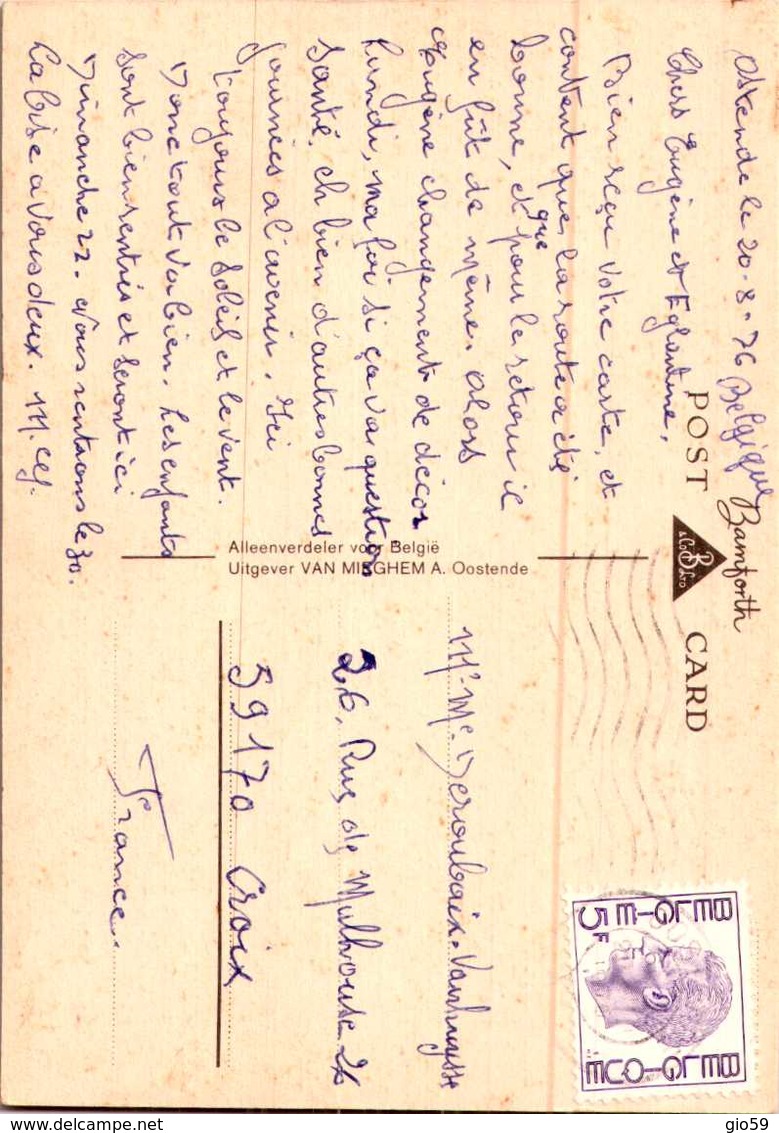 Ostende le 20-8-76 Belgique
Chers Eugène et Eglantine,
Bien reçu votre carte, et
content que, la route a été
bonne, et que pour le retour il
en fût de même. Alors
Eugène changement de décor
Lundi, ma foi si ça va question
santé, eh bien d'autres bonnes
journées a l'avenir. Ici
toujours le soleil et le vent.
Donc tout va bien. Les enfants
sont bien rentrés et seront ici
Dimanche 22. Nous rentrons le 30.
La bise a vous deux.
POST CARD
Bamforth
B
& Co Ltd
Alleenverdeler voor België
Uitgever VAN MIEGHEM A. Oostende
Mr. Me. Deroubaix-Vanhuysse
26. Rue de Mulhouse 26
59170 Croix
France.
BELGIE BELGIQUE
5F
gio59